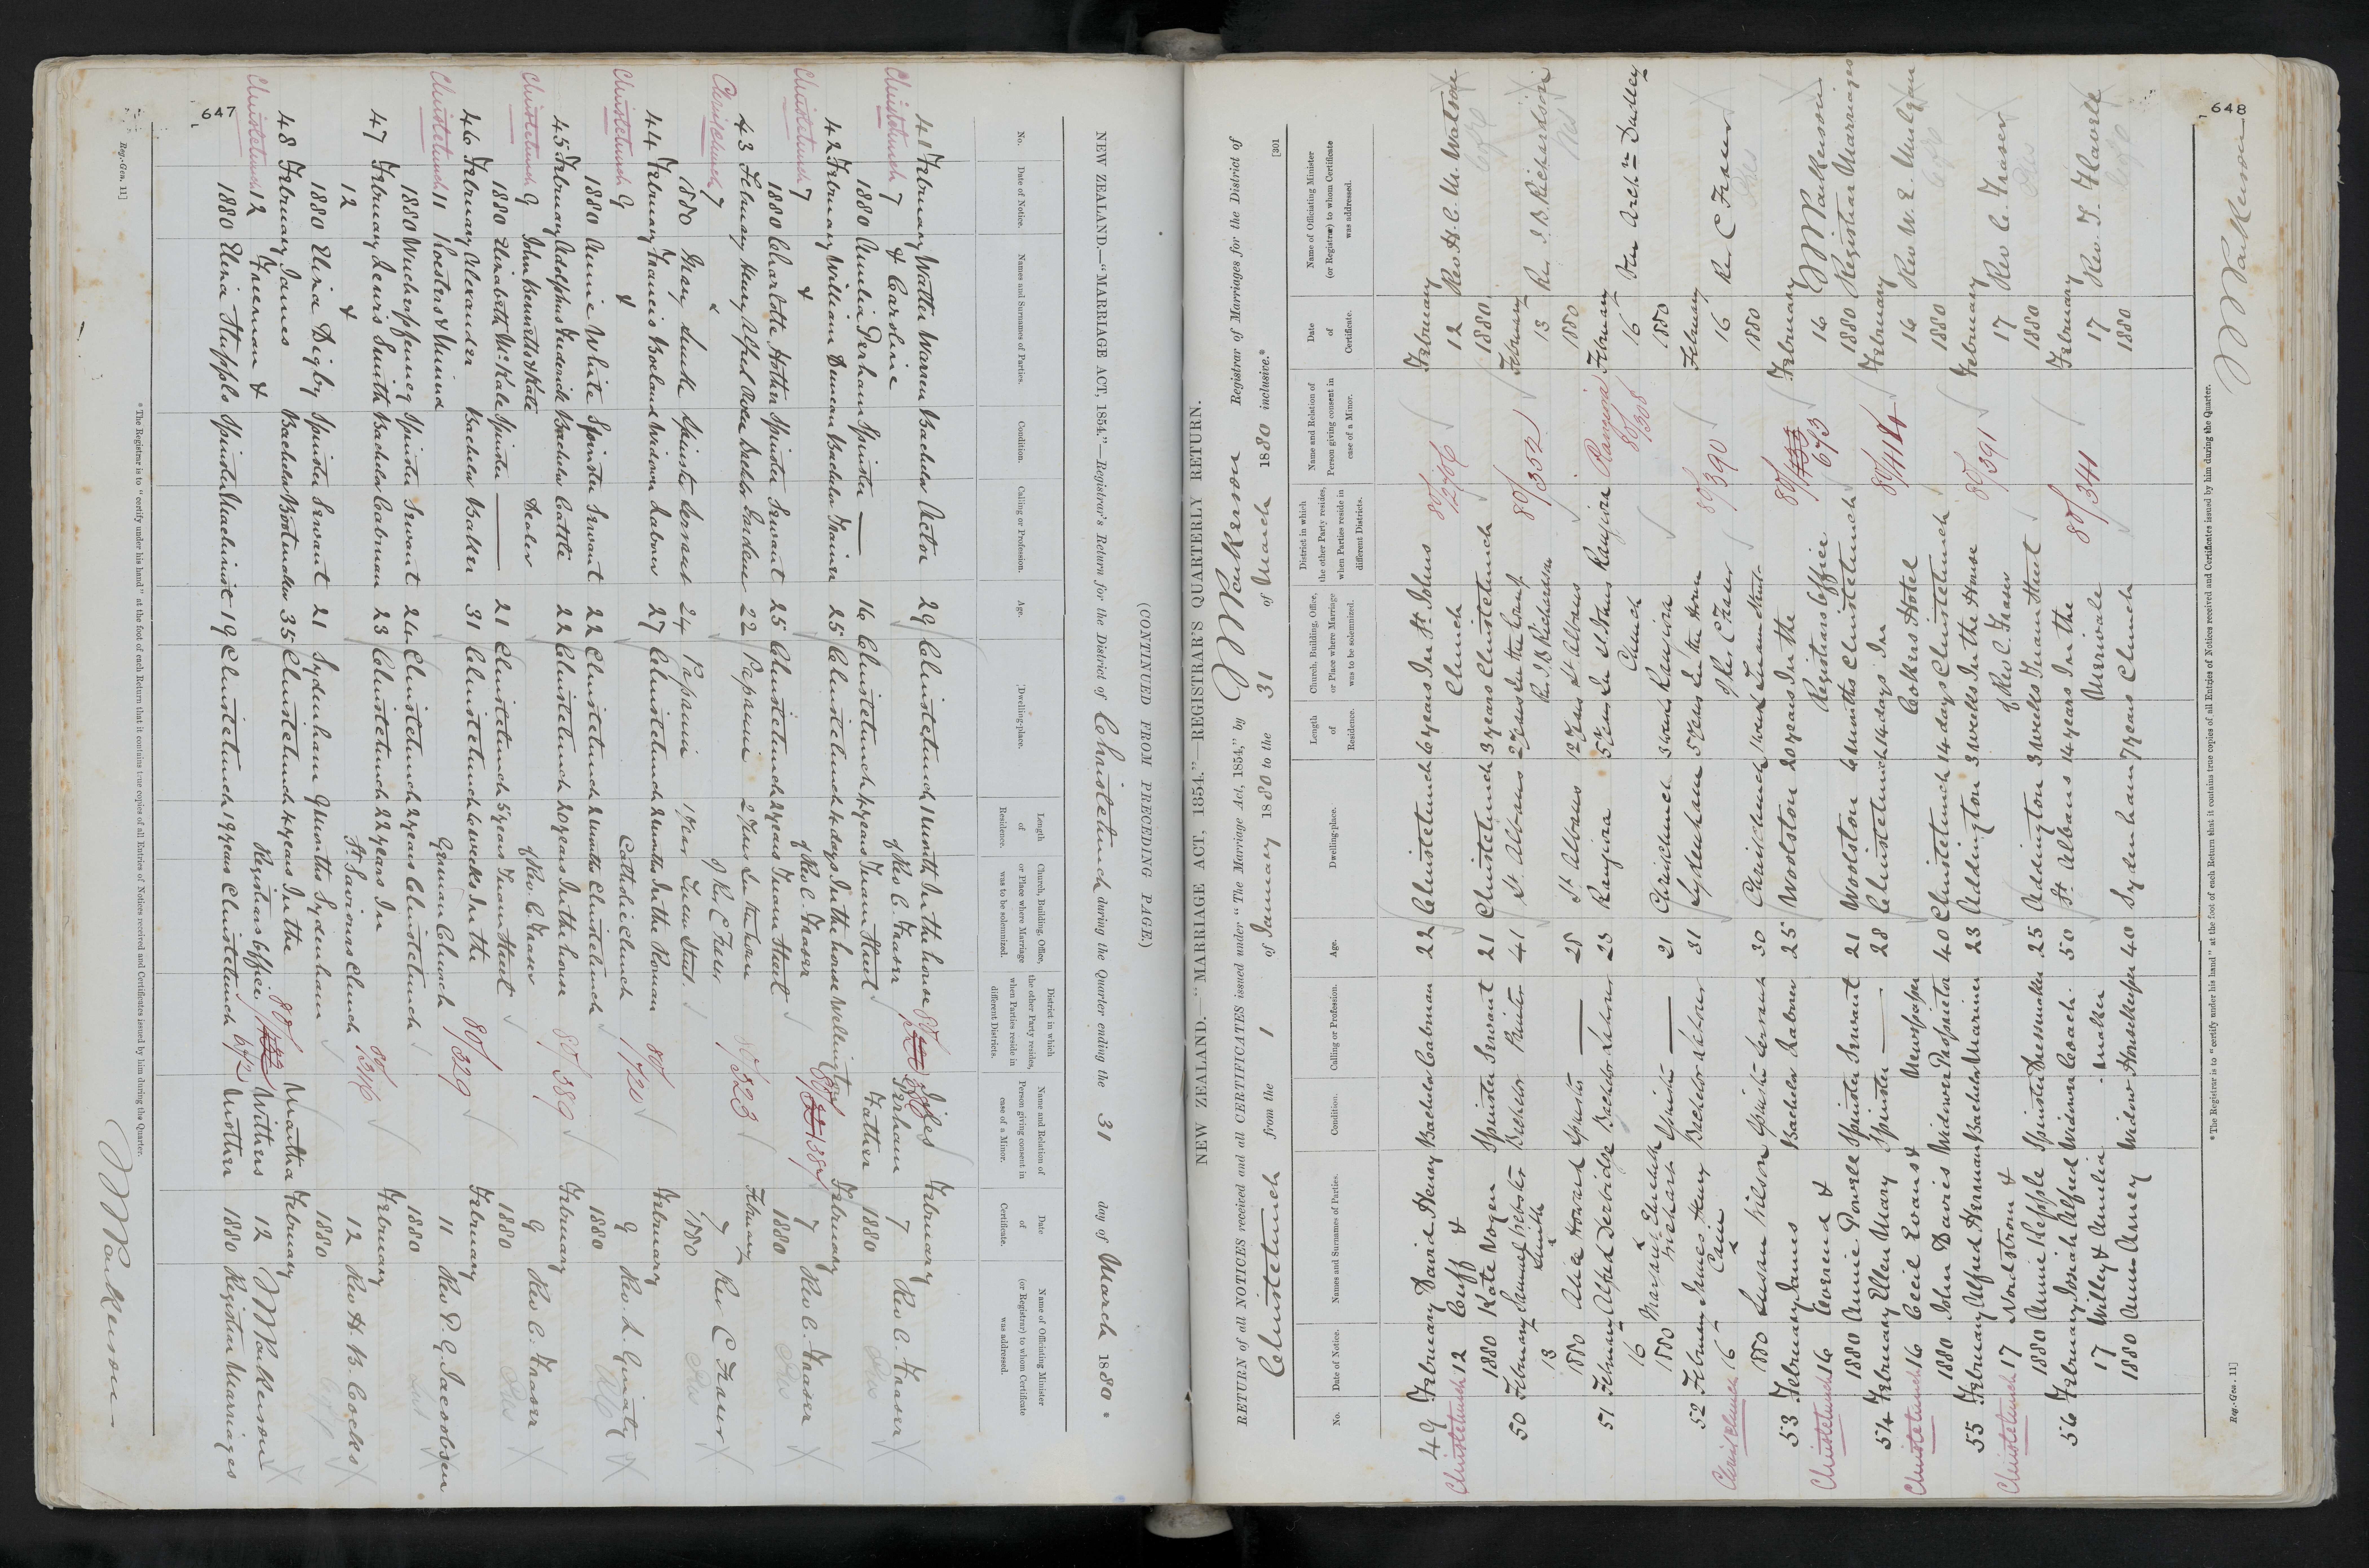 647
(CONTINUED FROM PRECEDING PAGE)
NEW ZEALAND.—"MARRIAGE ACT, 1854."—Registrar's Return for the District of Christchurch during the Quarter ending the 31 day of March 1880.
No. Date of Notice. Names and Surnames of Parties. Condition. Calling or Profession. Age. Dwelling-place. Length of Residence. Church, Building, Office, or Place where Marriage was to be solemnized. District in which the other Party resides, when Parties reside in different Districts. Name and Relation of Person giving consent in case of a Minor. Date of Certificate. Name of Officiating Minister (or Registrar) to whom Certificate was addressed.
41 February Walter Warren Bachelor Actor 29 Christchurch 1 Month In the house 80/ Giles February
Christchurch 7 & Caroline of Rev C. Fraser Perham 7 Rev C. Fraser
1880 Amelia Perham Spinster — 16 Christchurch 4 years Inam Street Father 1880
42 February William Duncan Bachelor Farmer 25 Christchurch 4 days In the house Wellington February
Christchurch 7 & of Rev C. Fraser 80/ 7 Rev C. Fraser
1880 Charlotte Spinster Servant 25 Christchurch 2 years Inam Street 1880
43 February Henry Alfred Bachelor Gardener 22 Papanui 2 Years In the house February
Christchurch 7 & of Rev C Fraser 80/323 7 Rev C Fraser
1880 Mary Spinster Servant 24 Papanui 1 Year Inam Street 1880
44 February Francis Boland Widower Labourer 27 Christchurch 2 Months In the Roman 80/ February
Christchurch 9 & Catholic Church 9 Rev. L. Ginaty
1880 Annie White Spinster Servant 22 Christchurch 2 Months Christchurch 1880
45 February Adolphus Frederick Bachelor Cattle 22 Christchurch 20 years In the house 80/389 February
Christchurch 9 John Bennett & Kate Dealer of Rev. C. Fraser 9 Rev C. Fraser
1880 Elizabeth McKale Spinster — 21 Christchurch 5 years Inam Street 1880
46 February Alexander Bachelor Baker 31 Christchurch 6 weeks In the 80/329 February
Christchurch 11 Koesters & Minna German Church 11 Rev P. G. Jacobsen
1880 Wuchopfennig Spinster Servant 24 Christchurch 2 years Christchurch 1880
47 February Lewis Smith Bachelor Cabman 23 Christchurch 22 years In 80/ February
12 & St Saviours Church 12 Rev H. B. Cocks
1880 Eliza Digby Spinster Servant 21 Sydenham 9 Months Sydenham 1880
48 February James Bachelor Bootmaker 35 Christchurch 4 years In the 80/ Martha February
Christchurch 12 Freeman & Registrars Office 672 Withers 12 Parkerson
1880 Eliza Hupplo Spinster Machinist 19 Christchurch 19 years Christchurch Mother 1880 Registrar Marriages
* The Registrar is to "certify under his hand" at the foot of each Return that it contains true copies of all Entries of Notices received and Certificates issued by him during the Quarter.
Reg.-Gen. 11]
Parkerson
648
[301
NEW ZEALAND.—"MARRIAGE ACT, 1854."—REGISTRAR'S QUARTERLY RETURN.
RETURN of all NOTICES received and all CERTIFICATES issued under "The Marriage Act, 1854," by Parkerson Registrar of Marriages for the District of
Christchurch from the 1 of January 1880 to the 31 of March 1880 inclusive.*
No. Date of Notice. Names and Surnames of Parties. Condition. Calling or Profession. Age. Dwelling-place. Length of Residence. Church, Building, Office, or Place where Marriage was to be solemnized. District in which the other Party resides, when Parties reside in different Districts. Name and Relation of Person giving consent in case of a Minor. Date of Certificate. Name of Officiating Minister (or Registrar) to whom Certificate was addressed.
49 February David Henry Bachelor Cabman 22 Christchurch 6 years In St. Johns 80/ February
Christchurch 12 Cuff & Church 12 Rev H. C. M. Watson
1880 Kate Nogen Spinster Servant 21 Christchurch 3 years Christchurch 1880
50 February Samuel Webster Bachelor Painter 41 St Albans 2 Years In the house of 80/352 February
13 Smith & Rev. J. B. Richardson 13 Rev. J. B. Richardson
1880 Alice Howard Spinster — 25 St Albans 12 Years St Albans 1880
51 February Alfred Derbidge Bachelor Labourer 23 Rangiora 5 Years In St. Johns Rangiora Rangiora February
16 & Church 80/308 16 Ven Archdn Dudley
1880 Margaret Elizabeth Spinster — 21 Christchurch 3 weeks Rangiora 1880
52 February James Henry Bachelor Labourer 31 Sydenham 5 Years In the House 80/390 February
Christchurch 16 Cain & of Rev. C Fraser 16 Rev C Fraser
1880 Susan Wilson Spinster Servant 30 Christchurch 1 week Inam Street 1880
53 February James Bachelor Labourer 25 Woolston 20 years In the 80/ February
Christchurch 16 & Registrars Office 673 16 Parkerson
1880 Annie Powell Spinster Servant 21 Woolston 6 Months Christchurch 1880 Registrar Marriages
54 February Ellen Mary Spinster — 28 Christchurch 14 days In 80/414 February
Christchurch 16 Cecil Evans & Newspaper Cokers Hotel 16 Rev W. E. Mulgan
1880 John Davies Widower Proprietor 40 Christchurch 14 days Christchurch 1880
55 February Alfred Herman Bachelor Mariner 23 Addington 3 weeks In the House 80/391 February
Christchurch 17 Nordstrom & of Rev C. Fraser 17 Rev C. Fraser
1880 Annie Kepple Spinster Dressmaker 25 Addington 3 weeks Inam Street 1880
56 February Josiah Alfred Widower Coach- 50 St Albans 14 years In the 80/341 February
17 Willey & Amelia maker Merivale 17 Rev. T. Flavell
1880 Ann Anney Widow Housekeeper 40 Sydenham 7 years Church 1880
* The Registrar is to "certify under his hand" at the foot of each Return that it contains true copies of all Entries of Notices received and Certificates issued by him during the Quarter.
Reg.-Gen. 11]
Parkerson